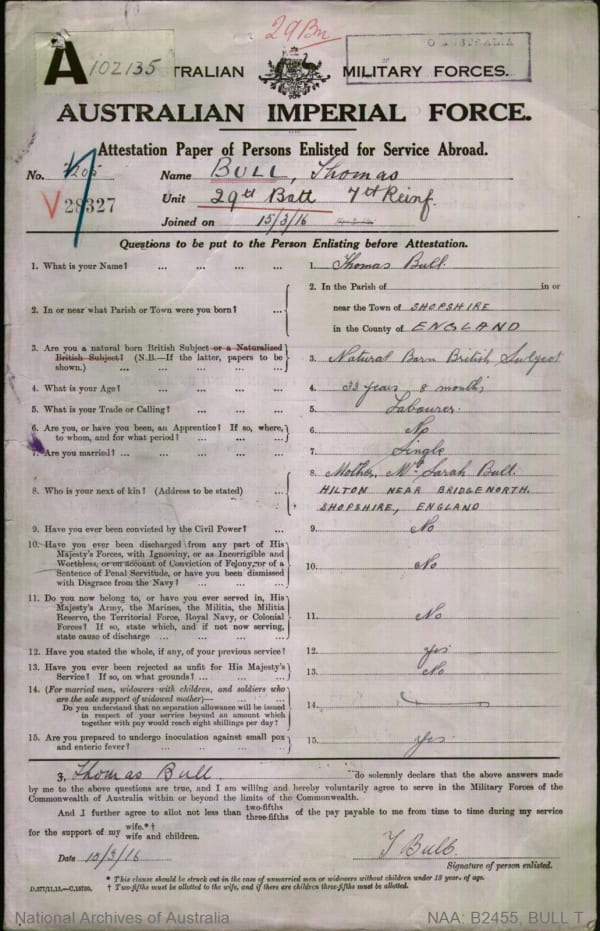 29Bn
AUSTRALIA
A 102135
TRALIAN MILITARY FORCES.
AUSTRALIAN IMPERIAL FORCE.
Attestation Paper of Persons Enlisted for Service Abroad.
No. Name BULL, Thomas
V 28327 Unit 29th Batt 7th Reinf.
Joined on 15/3/16
Questions to be put to the Person Enlisting before Attestation.
1. What is your Name? ... ... ... ... 1. Thomas Bull.
2. In or near what Parish or Town were you born? ... 2. In the Parish of in or
near the Town of SHOPSHIRE
in the County of ENGLAND
3. Are you a natural born British Subject or a Naturalized
British Subject? (N.B.—If the latter, papers to be
shown.) ... ... ... ... 3. Natural Born British Subject
4. What is your Age? ... ... ... 4. 33 years 8 months
5. What is your Trade or Calling? ... ... ... 5. Labourer.
6. Are you, or have you been, an Apprentice? If so, where,
to whom, and for what period? ... ... ... 6. No
7. Are you married? ... ... ... ... 7. Single
8. Who is your next of kin? (Address to be stated) ... 8. Mother, Mrs Sarah Bull.
HILTON NEAR BRIDGENORTH.
SHOPSHIRE, ENGLAND
9. Have you ever been convicted by the Civil Power? ... 9. No
10. Have you ever been discharged from any part of His
Majesty's Forces, with Ignominy, or as Incorrigible and
Worthless, or on account of Conviction of Felony, or of a
Sentence of Penal Servitude, or have you been dismissed
with Disgrace from the Navy? ... ... 10. No
11. Do you now belong to, or have you ever served in, His
Majesty's Army, the Marines, the Militia, the Militia
Reserve, the Territorial Force, Royal Navy, or Colonial
Forces? If so, state which, and if not now serving,
state cause of discharge ... ... ... 11. No
12. Have you stated the whole, if any, of your previous service? 12. yes
13. Have you ever been rejected as unfit for His Majesty's
Service? If so, on what grounds? ... ... 13. No
14. (For married men, widowers with children, and soldiers who
are the sole support of widowed mother)—
Do you understand that no separation allowance will be issued
in respect of your service beyond an amount which
together with pay would reach eight shillings per day? 14.
15. Are you prepared to undergo inoculation against small pox
and enteric fever? ... ... ... 15. Yes
I, Thomas Bull. do solemnly declare that the above answers made
by me to the above questions are true, and I am willing and hereby voluntarily agree to serve in the Military Forces of the
Commonwealth of Australia within or beyond the limits of the Commonwealth.
And I further agree to allot not less than two-fifths three-fifths of the pay payable to me from time to time during my service
for the support of my wife.*† wife and children.
Date 10/3/16 T Bull.
Signature of person enlisted.
* This clause should be struck out in the case of unmarried men or widowers without children under 18 years of age.
† Two-fifths must be allotted to the wife, and if there are children three-fifths must be allotted.
D.377/11.15.—C.15730.
National Archives of Australia NAA: B2455, BULL T